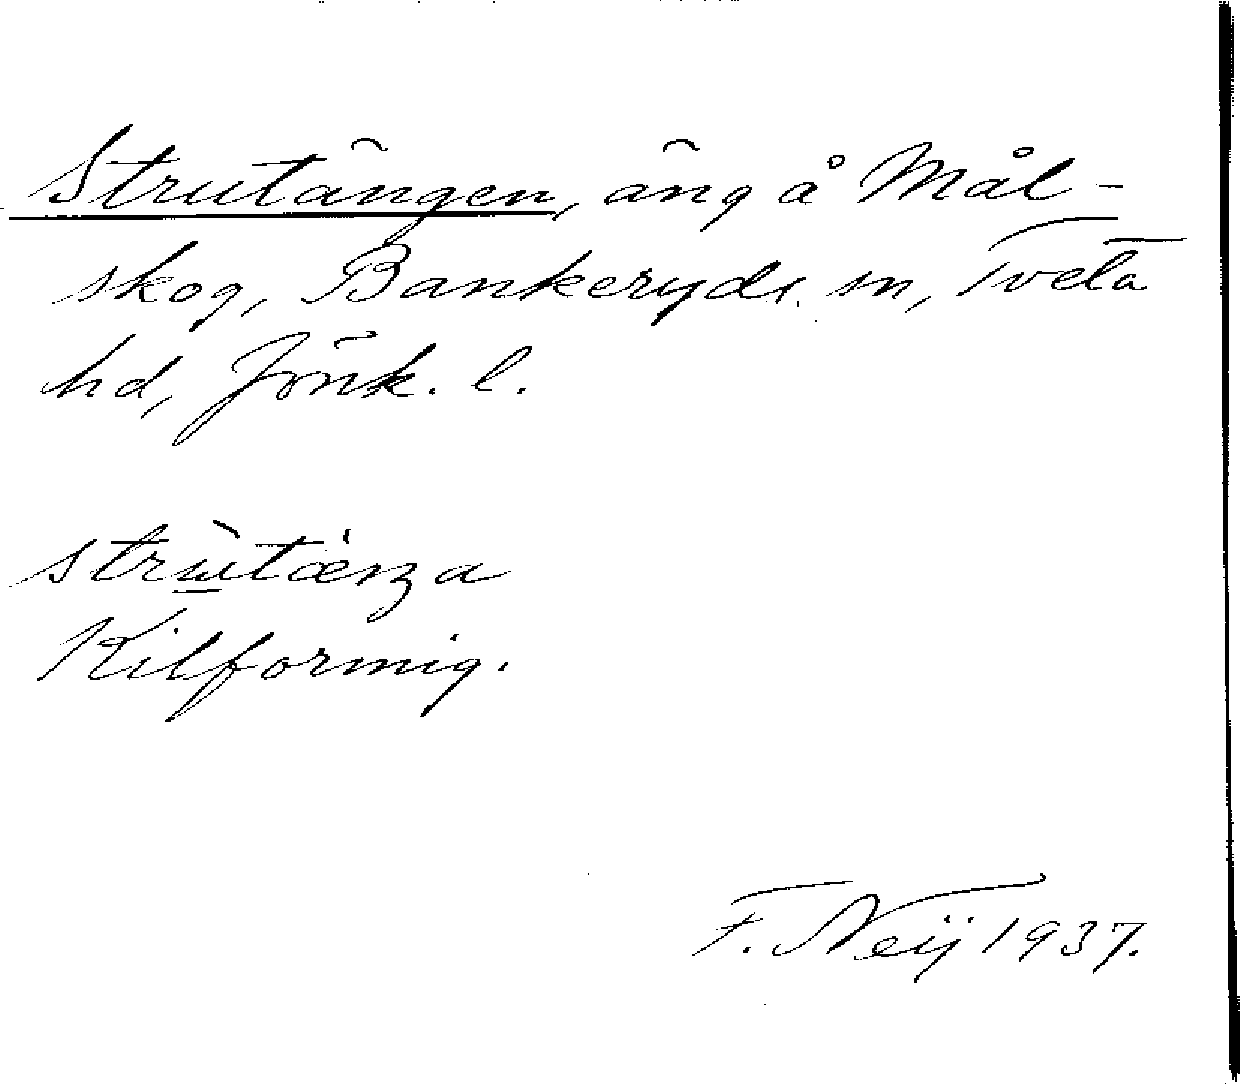 Strutängen, äng å Mål-
skog, Bankeryds sn, Tveta
hd, Jönk. l.
strùtæ̀nȝa
Kilformig.
F. Neij 1937.